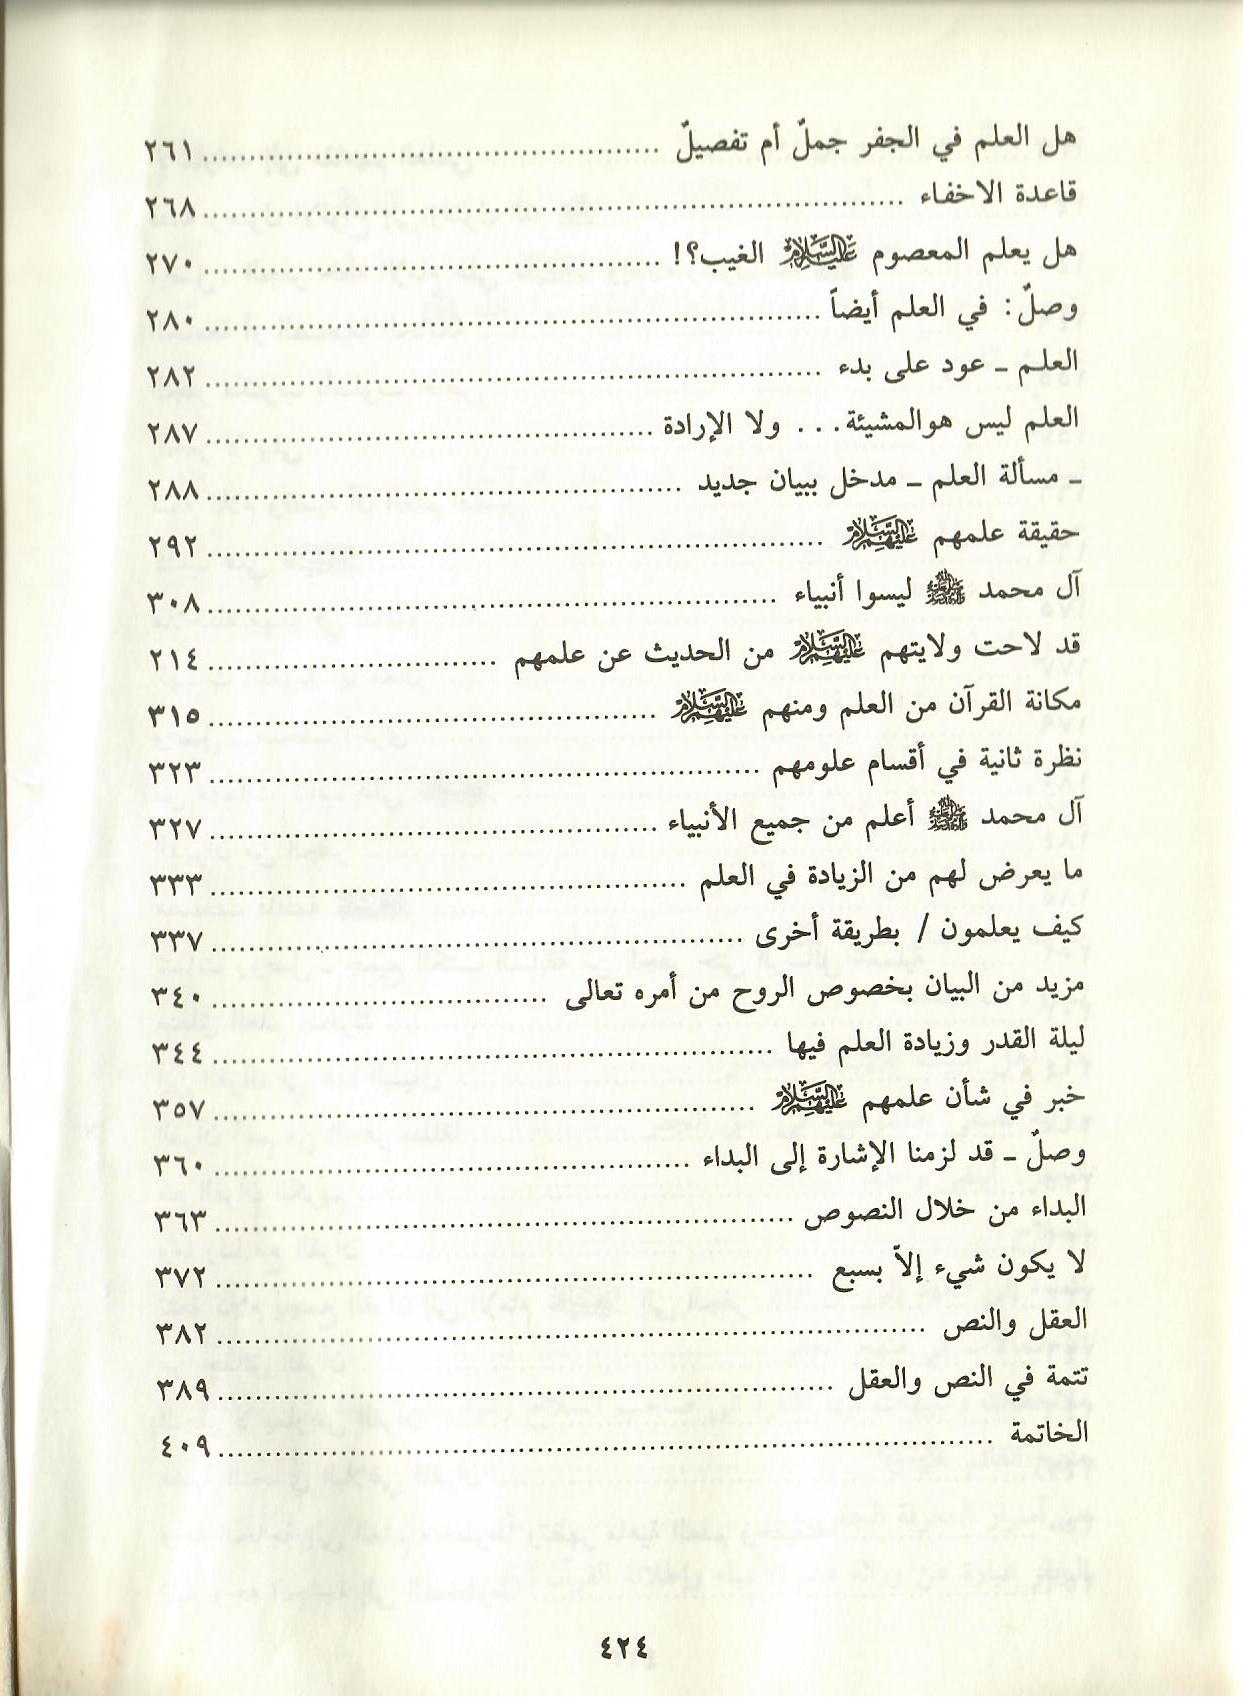 هل العلم في الجفر جملٌ أم تفصيلٌ ........ ٢٦١
قاعدة الاخفاء ........ ٢٦٨
هل يعلم المعصوم عليه السلام الغيب؟! ........ ٢٧٠
وصلٌ: في العلم أيضاً ........ ٢٨٠
العلم ـ عود على بدء ........ ٢٨٢
العلم ليس هوالمشيئة... ولا الإرادة ........ ٢٨٧
ـ مسألة العلم ـ مدخل ببيان جديد ........ ٢٨٨
حقيقة علمهم عليهم السلام ........ ٢٩٢
آل محمد ﷺ ليسوا أنبياء ........ ٣٠٨
قد لاحت ولايتهم عليهم السلام من الحديث عن علمهم ........ ٢١٤
مكانة القرآن من العلم ومنهم عليهم السلام ........ ٣١٥
نظرة ثانية في أقسام علومهم ........ ٣٢٣
آل محمد ﷺ أعلم من جميع الأنبياء ........ ٣٢٧
ما يعرض لهم من الزيادة في العلم ........ ٣٣٣
كيف يعلمون / بطريقة أخرى ........ ٣٣٧
مزيد من البيان بخصوص الروح من أمره تعالى ........ ٣٤٠
ليلة القدر وزيادة العلم فيها ........ ٣٤٤
خبر في شأن علمهم عليهم السلام ........ ٣٥٧
وصلٌ ـ قد لزمنا الإشارة إلى البداء ........ ٣٦٠
البداء من خلال النصوص ........ ٣٦٣
لا يكون شيء إلاّ بسبع ........ ٣٧٢
العقل والنص ........ ٣٨٢
تتمة في النص والعقل ........ ٣٨٩
الخاتمة ........ ٤٠٩
٤٢٤